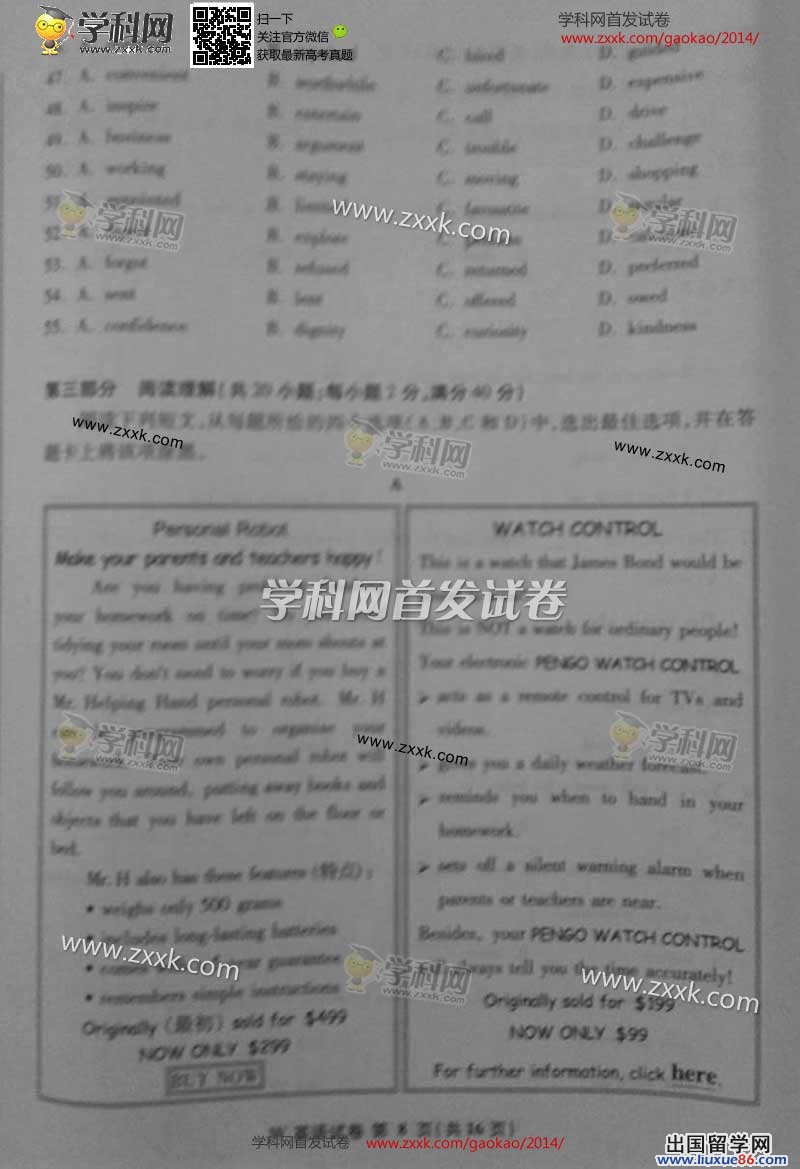 学科网
www.zxxk.com
扫一下
关注官方微信
获取最新高考真题
学科网首发试卷
www.zxxk.com/gaokao/2014/
D. guided
47. A. convenient B. worthwhile C. unfortunate D. expensive
48. A. inspire B. entertain C. call D. drive
49. A. business B. argument C. trouble D. challenge
50. A. working B. staying C. moving D. shopping
C. favourite D.
52. A. B. explore
53. A. forgot B. refused C. returned D. preferred
54. A. sent B. lent C. offered D. owed
55. A. confidence B. dignity C. curiosity D. kindness
第三部分 阅读理解(共20小题;每小题2分,满分40分)
阅读下列短文,从每题所给的四个选项(A、B、C和D)中,选出最佳选项,并在答
题卡上将该项涂黑。
A
Personal Robot
Make your parents and teachers happy!
Are you having
your homework on time?
tidying your room until your mom shouts at
you? You don't need to worry if you buy a
Mr. Helping Hand personal robot. Mr. H
programmed to organise your
own personal robot will
follow you around, putting away books and
objects that you have left on the floor or
bed.
Mr. H also has these features (特点):
• weighs only 500 grams
• includes long-lasting batteries
• comes guarantee
• remembers simple instructions
Originally (最初) sold for $499
NOW ONLY $299
BUY NOW
WATCH CONTROL
This is a watch that James Bond would be
This is NOT a watch for ordinary people!
Your electronic PENGO WATCH CONTROL
➢ acts as a remote control for TVs and
videos.
➢ gives you a daily weather forecast.
➢ reminds you when to hand in your
homework.
➢ sets off a silent warning alarm when
parents or teachers are near.
Besides, your PENGO WATCH CONTROL
will always tell you the time accurately!
Originally sold for $199
NOW ONLY $99
For further information, click here.
英语试卷 第 8 页(共16页)
学科网首发试卷 www.zxxk.com/gaokao/2014/
出国留学网
www.liuxue86.com